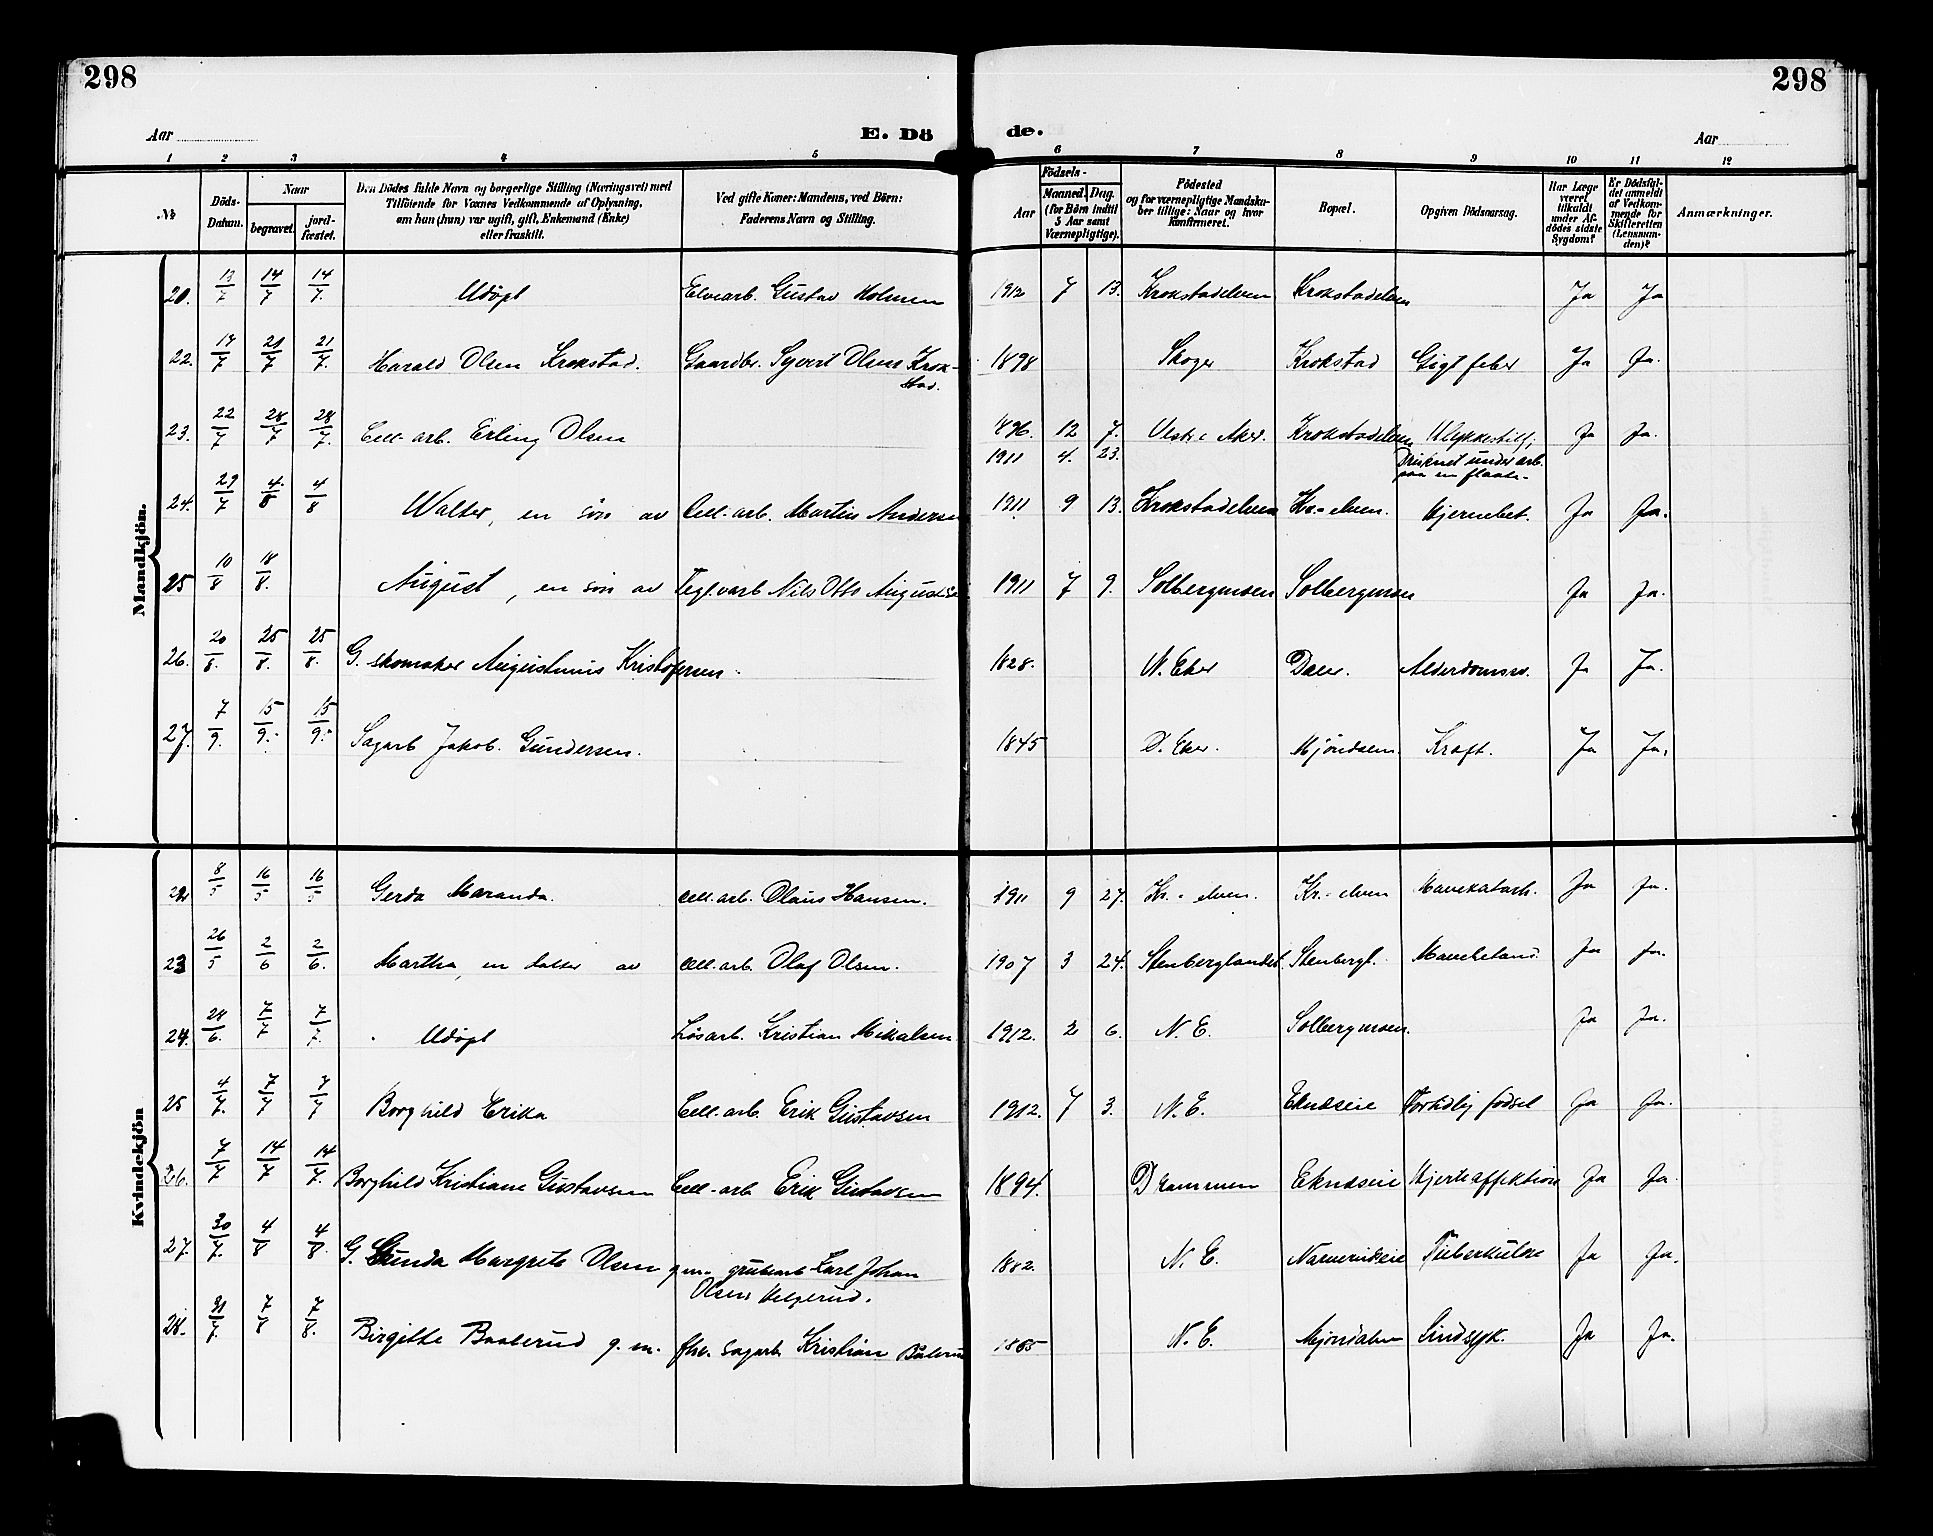 298
298
Aar
E. Dö
de.
Aar
1 2 3 4 5 6 7 8 9 10 11 12
№
Döds-Datum.
Naar
begravet.
jord-fæstet.
Den Dödes fulde Navn og borgerlige Stilling (Næringsvei) med
Tilföiende for Voxnes Vedkommende af Oplysning,
om han (hun) var ugift, gift, Enkemand (Enke)
eller fraskilt.
Ved gifte Koner: Mandens, ved Börn:
Faderens Navn og Stilling.
Födsels-
Aar
Maaned. Dag.
(for Börn indtil
5 Aar samt
Værnepligtige).
Födested
og for værnepligtige Mandska-
ber tillige: Naar og hvor
konfirmeret.
Bopæl.
Opgiven Dödsaarsag.
Har Læge
været
tilkaldt
under Af-
dödes sidste
Sygdom?
Er Dödsfal-
det anmeldt
af Vedkom-
mende for
Skifteretten
(Lensman-
den)?
Anmærkninger.
Mandkjön.
21. 13/7 14/7 14/7. Udøpt Elvearb. Gustav Holmen 1912 7 13. Krokstadelven Krokstadelven Ja Ja
22. 17/7 21/7 21/7. Harald Olsen Krokstad. Gaardbr. Syvert Olsen Krok-
stad. 1898 Skoger Krokstad Gigtfeber Ja Ja.
23. 22/7 28/7 28/7. Cell-arb. Erling Olsen 1896 12 7. Vestre Aker. Krokstadelven Ulykkestilf;
1911 4. 23. Druknet under arb.
paa en flaate.
24. 29/7 4/8 4/8 Walter, en søn av Cell-arb. Martin Andersen 1911 9 13. Krokstadelven Kr.-elven. Hjernebet. Ja Ja.
25 10/8 18/8. August, en søn av Teglvarb Nils Otto August 1911 7 9. Solbergmoen Solbergmoen Ja Ja.
26. 20/8. 25/8. 25/8. G. skomaker Augustinius Kristofersen. 1828. N. Eker Daler. Alderdomssv. Ja Ja.
27. 7/9. 15/9. 15/9. Sagarb Jakob Gundersen. 1845 Ø. Eker. Mjöndalen. Kræft. Ja Ja.
Kvindekjön
22 8/5 16/5 16/5 Gerda Maranda. Cell-arb. Olaus Hansen. 1911 9 27. Kr.-elven. Kr.-elven Mavekatarh. Ja Ja.
23 26/5 2/6 2/6. Martha, en datter av Cell-arb. Olaf Olsen. 1907 3 24. Stenberglandet. Stenbergl. Ja Ja.
24. 28/6. 7/7 7/7. Udøpt Løsarb. Kristian Mikalsen. 1912. 2 6. N. E. Solbergmoen. Ja Ja.
25 4/7. 7/7 7/7 Borghild Erika Cell-arb. Erik Gustavsen 1912. 7 3. N. E. Eknæseie Fortidlig fødsel Ja Ja.
26. 7/7 14/7 14/7. Borghild Kristiane Gustavsen Cell-arb Erik Gustavsen 1894. Drammen Eknæseie Hjerteaffektion Ja Ja
27. 30/7. 4/8 4/8. G. Gunda Margrete Olsen g.m. grubearb Karl Johan
Olsen Helgerud. 1882. N. E. Tuberkulose Ja Ja.
28. 31/7. 7/8 7/8. Birgitte Baalerud g. m. fhv. sagarb Kristian Bålerud 1865 N. E. Mjøndalen Sindssyk. Ja Ja.